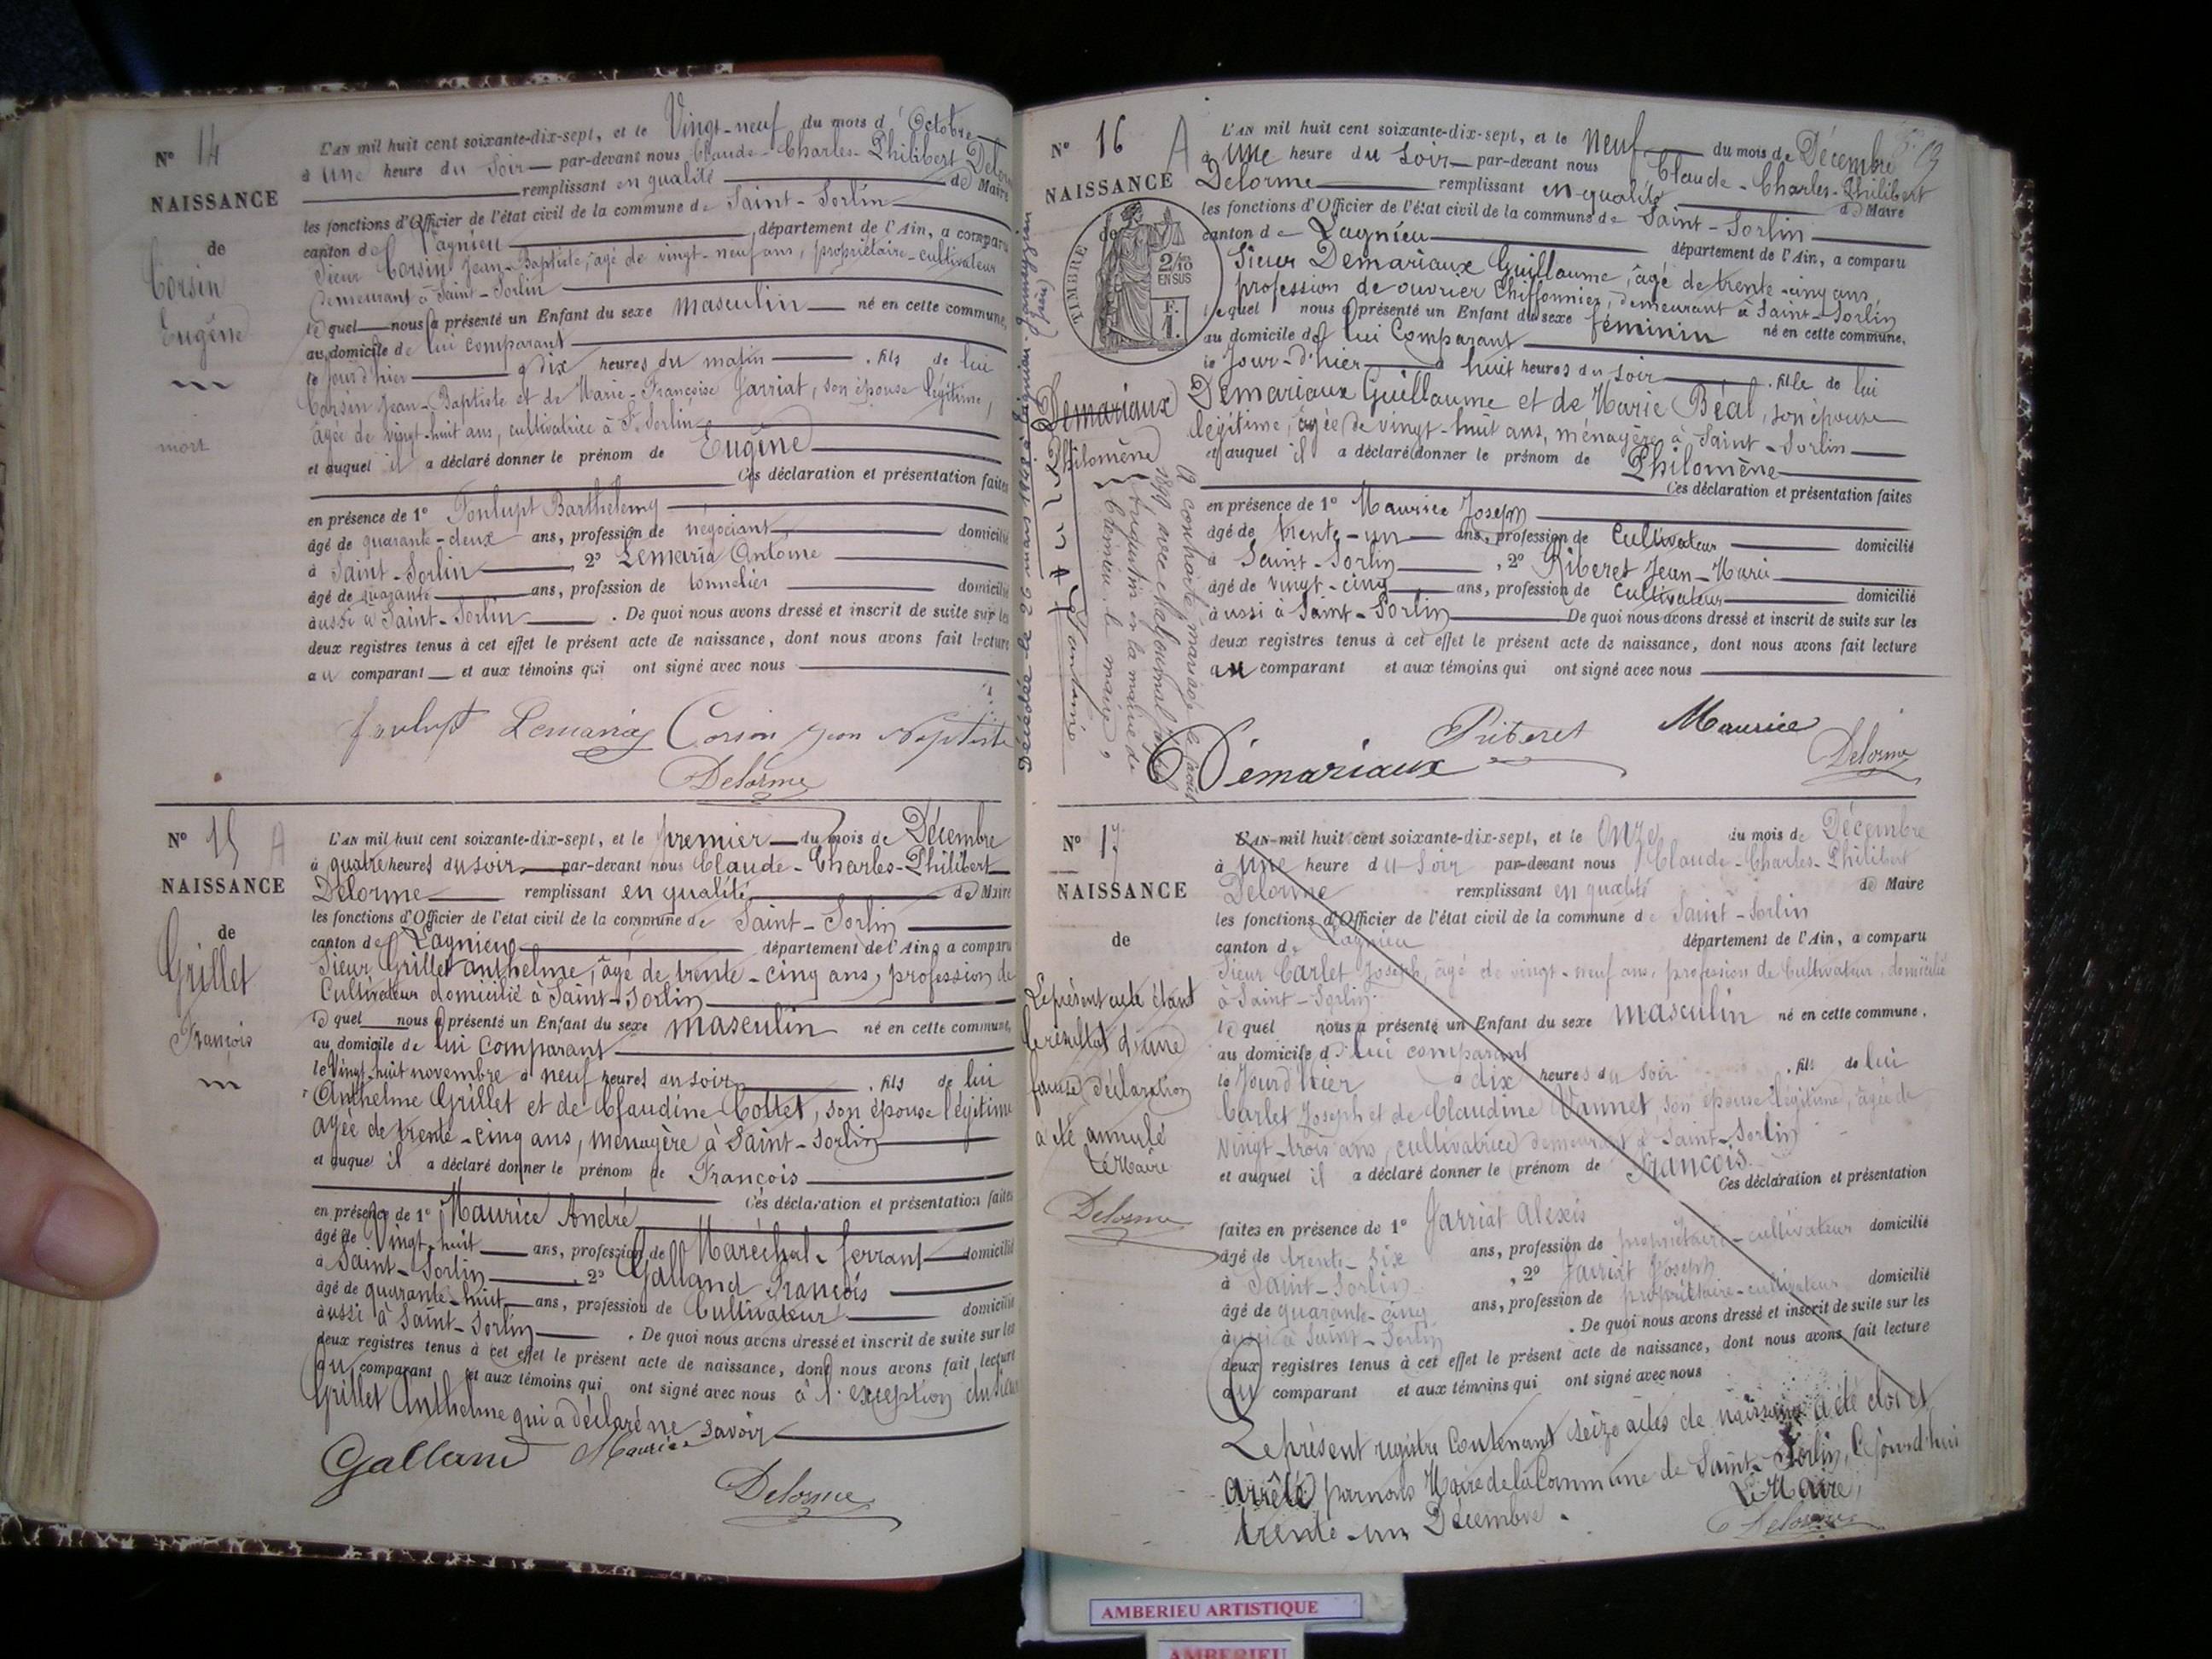 N° 14
NAISSANCE
de
Corsin
Eugène
mort
L'AN mil huit cent soixante-dix-sept, et le Vingt-neuf du mois d'Octobre
à une heure du Soir par-devant nous Claude-Charles-Philibert Delorme
remplissant en qualité de Maire
les fonctions d'Officier de l'état civil de la commune de Saint-Sorlin
canton de Lagnieu, département de l'Ain, a comparu
Sieur Corsin Jean-Baptiste, âgé de vingt-neuf ans, propriétaire-cultivateur
demeurant à Saint-Sorlin
lequel nous a présenté un Enfant du sexe masculin né en cette commune,
au domicile de lui comparant
le jourd'hier à dix heures du matin, fils de lui
Corsin Jean-Baptiste et de Marie-Françoise Jarriat, son épouse légitime,
âgée de vingt-huit ans, cultivatrice à St Sorlin
et auquel il a déclaré donner le prénom de Eugène
Ces déclaration et présentation faites
en présence de 1° Fonlupt Barthélemy
âgé de quarante-deux ans, profession de négociant domicilié
à Saint-Sorlin, 2° Lemaria Antoine
âgé de quarante ans, profession de tonnelier domicilié
aussi à Saint-Sorlin. De quoi nous avons dressé et inscrit de suite sur les
deux registres tenus à cet effet le présent acte de naissance, dont nous avons fait lecture
au comparant et aux témoins qui ont signé avec nous
fonlupt Lemaria Corsin Jean Baptiste
Delorme
N° 15 A
NAISSANCE
de
Grillet
François
L'AN mil huit cent soixante-dix-sept, et le premier du mois de Décembre
à quatre heures du soir par-devant nous Claude-Charles-Philibert
Delorme remplissant en qualité de Maire
les fonctions d'Officier de l'état civil de la commune de Saint-Sorlin
canton de Lagnieu département de l'Ain, a comparu
Sieur Grillet anthelme, âgé de trente-cinq ans, profession de
Cultivateur domicilié à Saint-Sorlin
lequel nous a présenté un Enfant du sexe masculin né en cette commune,
au domicile de lui comparant
le Vingt-huit novembre à neuf heures du soir, fils de lui
Anthelme Grillet et de Claudine Collet, son épouse légitime
agée de trente-cinq ans, ménagère à Saint-Sorlin
et auquel il a déclaré donner le prénom de François
Ces déclaration et présentation faites
en présence de 1° Maurice André
âgé de Vingt-huit ans, profession de Maréchal-ferrant domicilié
à Saint-Sorlin, 2° Galland François
âgé de quarante-huit ans, profession de Cultivateur domicilié
aussi à Saint-Sorlin. De quoi nous avons dressé et inscrit de suite sur les
deux registres tenus à cet effet le présent acte de naissance, dont nous avons fait lecture
au comparant et aux témoins qui ont signé avec nous à l'exception du sieur
Grillet Anthelme qui a déclaré ne savoir
Galland Maurice
Delorme
N° 16 A
NAISSANCE
de
TIMBRE
2/10
EN SUS
F.
1.
Demariaux
Philomène
Décédée le 26 mars
A contracté mariage le
1899 avec
en la mairie de
le maire,
L'AN mil huit cent soixante-dix-sept, et le neuf du mois de Décembre
à une heure du Soir par-devant nous Claude-Charles-Philibert
Delorme remplissant en qualité de Maire
les fonctions d'Officier de l'état civil de la commune de Saint-Sorlin
canton de Lagnieu département de l'Ain, a comparu
Sieur Demariaux Guillaume, âgé de trente-cinq ans,
profession de ouvrier Chiffonnier, demeurant à Saint-Sorlin
lequel nous a présenté un Enfant du sexe féminin né en cette commune,
au domicile de lui Comparant
le Jour-d'hier à huit heures du soir, fille de lui
Demariaux Guillaume et de Marie Béal, son épouse
légitime, âgée de vingt-huit ans, ménagère à Saint-Sorlin
et auquel il a déclaré donner le prénom de Philomène
Ces déclaration et présentation faites
en présence de 1° Maurice Joseph
âgé de trente-un ans, profession de Cultivateur domicilié
à Saint-Sorlin, 2° Riberet Jean-Marie
âgé de vingt-cinq ans, profession de Cultivateur domicilié
aussi à Saint-Sorlin De quoi nous avons dressé et inscrit de suite sur les
deux registres tenus à cet effet le présent acte de naissance, dont nous avons fait lecture
au comparant et aux témoins qui ont signé avec nous
Démariaux Riberet Maurice
Delorme
N° 17
NAISSANCE
de
Le présent acte étant
le résultat d'une
fausse déclaration
a été annulé
Le Maire
Delorme
L'AN mil huit cent soixante-dix-sept, et le onze du mois de Décembre
à une heure du Soir par-devant nous Claude-Charles-Philibert
Delorme remplissant en qualité de Maire
les fonctions d'Officier de l'état civil de la commune de Saint-Sorlin
canton de Lagnieu département de l'Ain, a comparu
Sieur Carlet Joseph, âgé de vingt-neuf ans, profession de Cultivateur, domicilié
à Saint-Sorlin
lequel nous a présenté un Enfant du sexe masculin né en cette commune,
au domicile de lui comparant
le Jourd'hier à dix heures du soir, fils de lui
Carlet Joseph et de Claudine Vannet, son épouse légitime, âgée de
Vingt-trois ans, cultivatrice demeurant à Saint-Sorlin
et auquel il a déclaré donner le prénom de François.
Ces déclaration et présentation
faites en présence de 1° Jarriat Alexis
âgé de trente-six ans, profession de propriétaire-cultivateur domicilié
à Saint-Sorlin, 2° Jarriat Joseph
âgé de quarante-cinq ans, profession de propriétaire-cultivateur domicilié
aussi à Saint-Sorlin. De quoi nous avons dressé et inscrit de suite sur les
deux registres tenus à cet effet le présent acte de naissance, dont nous avons fait lecture
au comparant et aux témoins qui ont signé avec nous
Le présent registre Contenant seize actes de naissance a été clos et
arrêté par nous Maire de la Commune de Saint-Sorlin, le jourd'hui
trente-un Décembre. Le Maire,
Delorme
AMBERIEU ARTISTIQUE
AMBERIEU